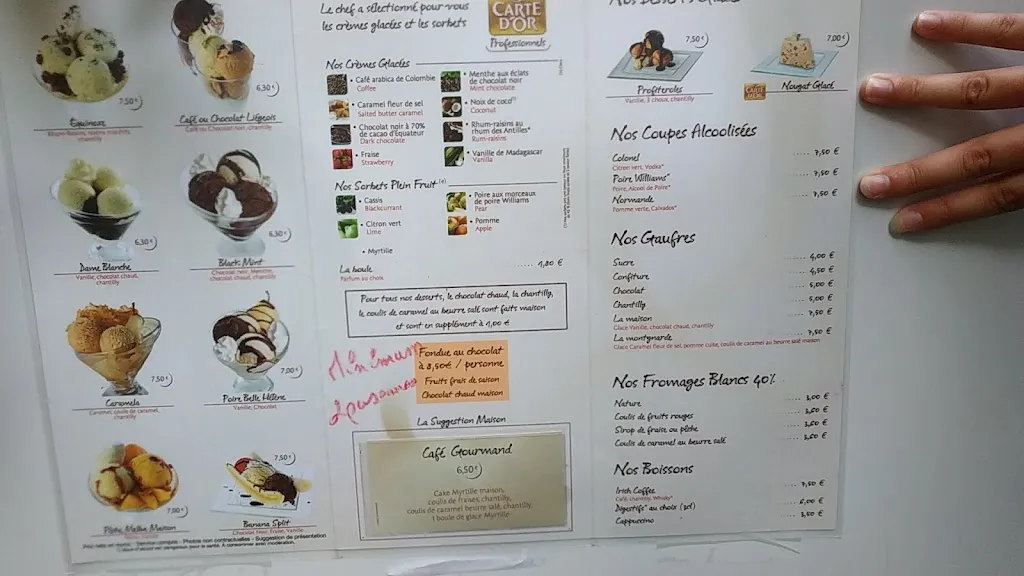 7,50€
6,30€
Café ou Chocolat Liégeois
Café ou Chocolat noir, chantilly
6,30€
Dame Blanche
Vanille, chocolat chaud,
chantilly
6,30€
Black Mint
Chocolat noir, Menthe,
chocolat chaud, chantilly
7,50€
Caramela
Caramel, coulis de caramel,
chantilly
7,00€
Poire Belle Hélène
Vanille, Chocolat
7,00€
Pêche Melba Maison
7,50€
Banana Split
Chocolat Noir, Fraise, Vanille
Prix nets en euros - Service compris - Photos non contractuelles - Suggestion de présentation
L'abus d'alcool est dangereux pour la santé. À consommer avec modération.
Le chef a sélectionné pour vous
les crèmes glacées et les sorbets
CARTE
D'OR
Professionnels
Nos Crèmes Glacées
• Café arabica de Colombie
Coffee
• Caramel fleur de sel
Salted butter caramel
• Chocolat noir à 70%
de cacao d'Equateur
Dark chocolate
• Fraise
Strawberry
• Menthe aux éclats
de chocolat noir
Mint chocolate
• Noix de coco
Coconut
• Rhum-raisins au
rhum des Antilles*
Rum-raisins
• Vanille de Madagascar
Vanilla
Nos Sorbets Plein Fruit
• Cassis
Blackcurrant
• Citron vert
Lime
• Poire aux morceaux
de poire Williams
Pear
• Pomme
Apple
• Myrtille
La boule ...... 1,80 €
Parfum au choix
Pour tous nos desserts, le chocolat chaud, la chantilly,
le coulis de caramel au beurre salé sont faits maison
et sont en supplément à 1,00 €
Minimum
2 personnes
Fondue au chocolat
à 8,50€ / personne
Fruits frais de saison
Chocolat chaud maison
La Suggestion Maison
Café Gourmand
6,50€
Cake Myrtille maison,
coulis de fraises, chantilly,
coulis de caramel beurre salé, chantilly,
1 boule de glace Myrtille
7,50€
Profiteroles
Vanille, 3 choux, chantilly
7,00€
CARTE D'OR
Nougat Glacé
Nos Coupes Alcoolisées
Colonel .... 7,50 €
Citron vert, Vodka*
Poire Williams* .... 7,50 €
Poire, Alcool de Poire*
Normande .... 7,50 €
Pomme verte, Calvados*
Nos Gaufres
Sucre .... 4,00 €
Confiture .... 4,50 €
Chocolat .... 5,00 €
Chantilly .... 5,00 €
La maison .... 7,50 €
Glace Vanille, chocolat chaud, chantilly
La montagnarde .... 7,50 €
Glace Caramel fleur de sel, pomme cuite, coulis de caramel au beurre salé maison
Nos Fromages Blancs 40%
Nature .... 3,00 €
Coulis de fruits rouges .... 3,60 €
Sirop de fraise ou pêche .... 3,60 €
Coulis de caramel au beurre salé .... 3,60 €
Nos Boissons
Irish Coffee .... 7,50 €
Café, chantilly, Whisky*
Digestifs* au choix .... 6,00 €
Cappuccino .... 3,50 €